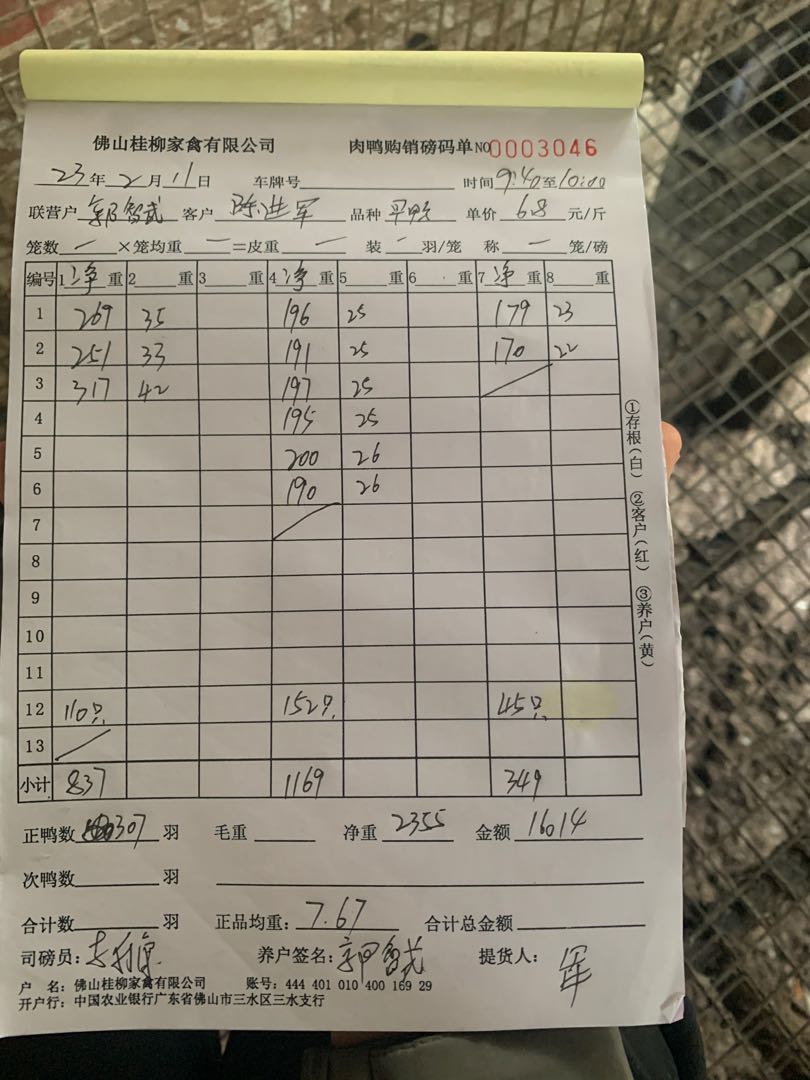 佛山桂柳家禽有限公司 肉鸭购销磅码单 NO 0003046
23年2月11日 车牌号 时间9:40至10:00
联营户 郭智武 客户 陈进军 品种 单价 6.8 元/斤
笼数 一 ×笼均重 一 =皮重 一 装 一 羽/笼 称 一 笼/磅
编号 1净重 2 重 3 重 4净重 5 重 6 重 7净重 8 重
1 269 35 196 25 179 23
2 251 33 191 25 170 22
3 317 42 197 25
4 195 25
5 200 26
6 190 26
7
8
9
10
11
12 110只 152只 45只
13
小计 837 1169 349
正鸭数 307 羽 毛重 净重 2355 金额 16014
次鸭数 羽
合计数 羽 正品均重: 7.67 合计总金额
司磅员: 养户签名: 郭智武 提货人: 军
户 名: 佛山桂柳家禽有限公司 账号: 444 401 010 400 169 29
开户行: 中国农业银行广东省佛山市三水区三水支行
①存根(白) ②客户(红) ③养户(黄)